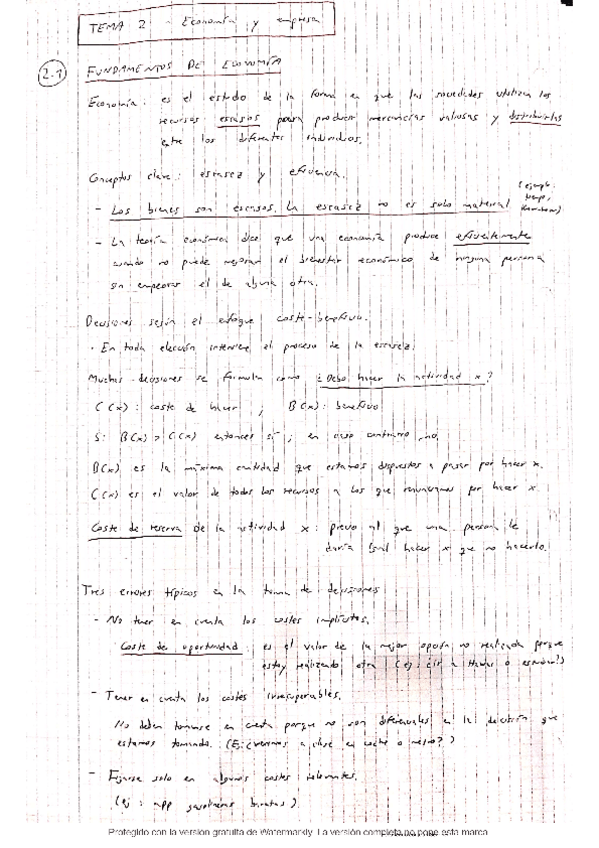 TEMA 2 - Economía y empresa
2.1 FUNDAMENTOS DE ECONOMÍA
Economía: es el estudio de la forma en que las sociedades utilizan los
recursos escasos para producir mercancías valiosas y distribuirlas
entre los diferentes individuos.
Conceptos clave: escasez y eficiencia.
- Los bienes son escasos. La escasez no es solo material (ejemplo:
- La teoría económica dice que una economía produce eficientemente
cuando no puede mejorar el bienestar económico de ninguna persona
sin empeorar el de alguna otra.
Decisiones según el enfoque coste-beneficio.
· En toda elección interviene el proceso de la escasez.
Muchas decisiones se formulan como ¿Debo hacer la actividad x?
C(x): coste de hacer ; B(x): beneficio
Si B(x) > C(x) entonces sí ; en caso contrario, no.
B(x) es la máxima cantidad que estamos dispuestos a pagar por hacer x.
C(x) es el valor de todos los recursos a los que renunciamos por hacer x.
Coste de reserva de la actividad x: precio al que una persona le
daría igual hacer x que no hacerlo.
Tres errores típicos en la toma de decisiones
- No tener en cuenta los costes implícitos.
Coste de oportunidad: es el valor de la mejor opción no realizada porque
estoy realizando otra (ej: ir a o
- Tener en cuenta los costes irrecuperables.
No deben tomarse en cuenta porque no son diferenciales en la decisión que
estamos tomando. (Ej: a clase en coche o metro?)
- Fijarse solo en algunos costes relevantes.
(ej: app gasolineras baratas)
Protegido con la versión gratuita de Watermarkly. La versión completa no pone esta marca.